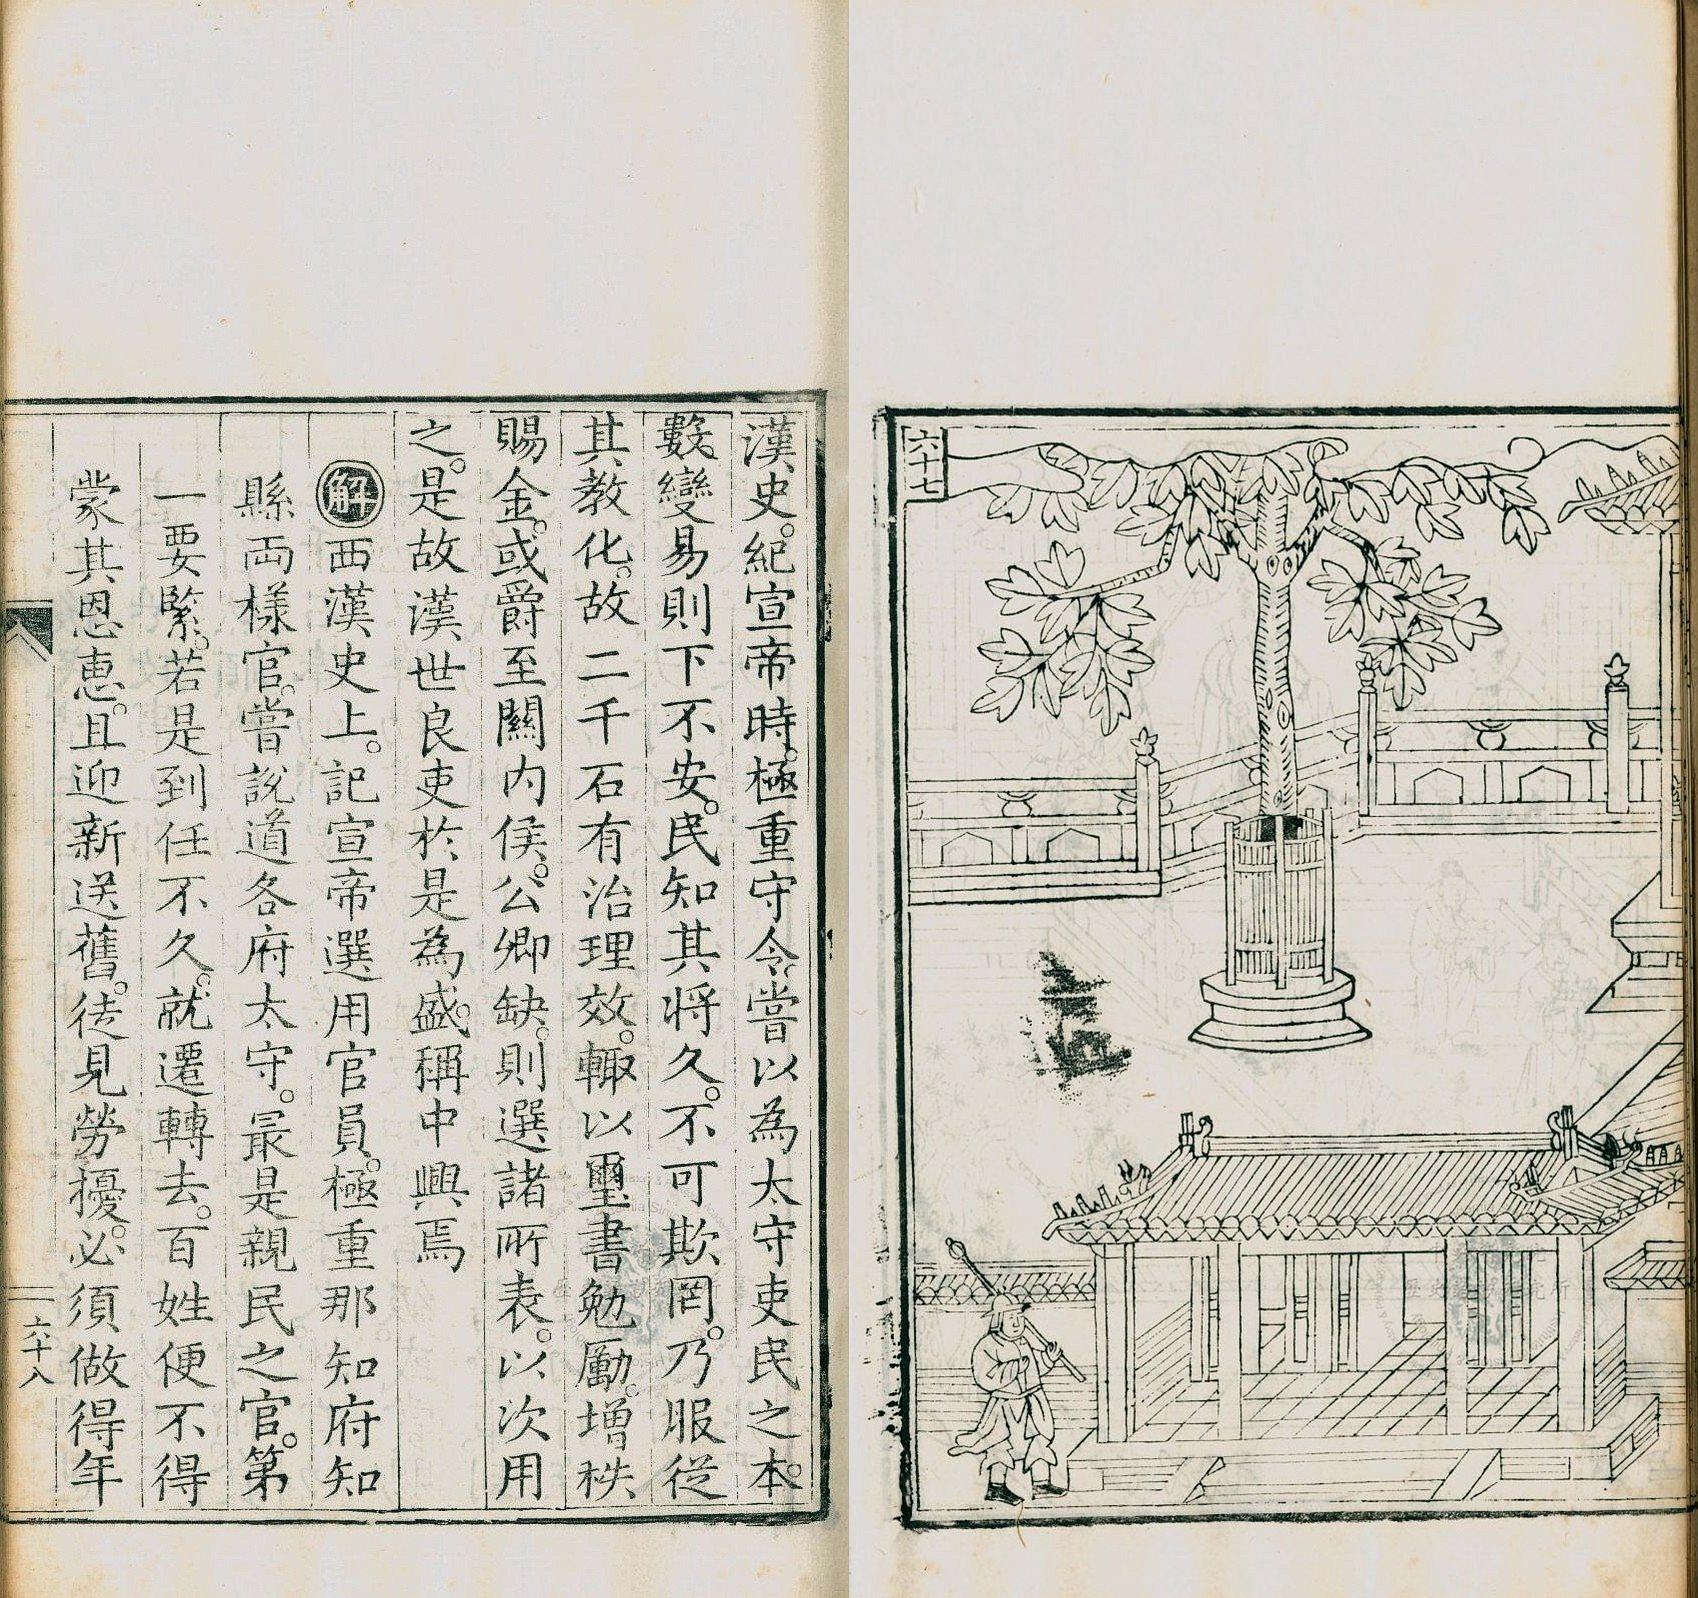 六十七
漢史。紀宣帝時。極重守令。嘗以為太守吏民之本。
數變易則下不安。民知其將久。不可欺罔。乃服從
其教化。故二千石有治理效。輙以璽書勉厲。增秩
賜金。或爵至關内侯。公卿缺。則選諸所表。以次用
之。是故漢世良吏於是為盛。稱中興焉
解西漢史上。記宣帝選用官員。極重那知府知
縣両樣官。嘗説道各府太守。最是親民之官。第
一要緊。若是到任不久。就遷轉去。百姓便不得
蒙其恩惠。且迎新送舊。徒見勞擾。必須做得年
六十八